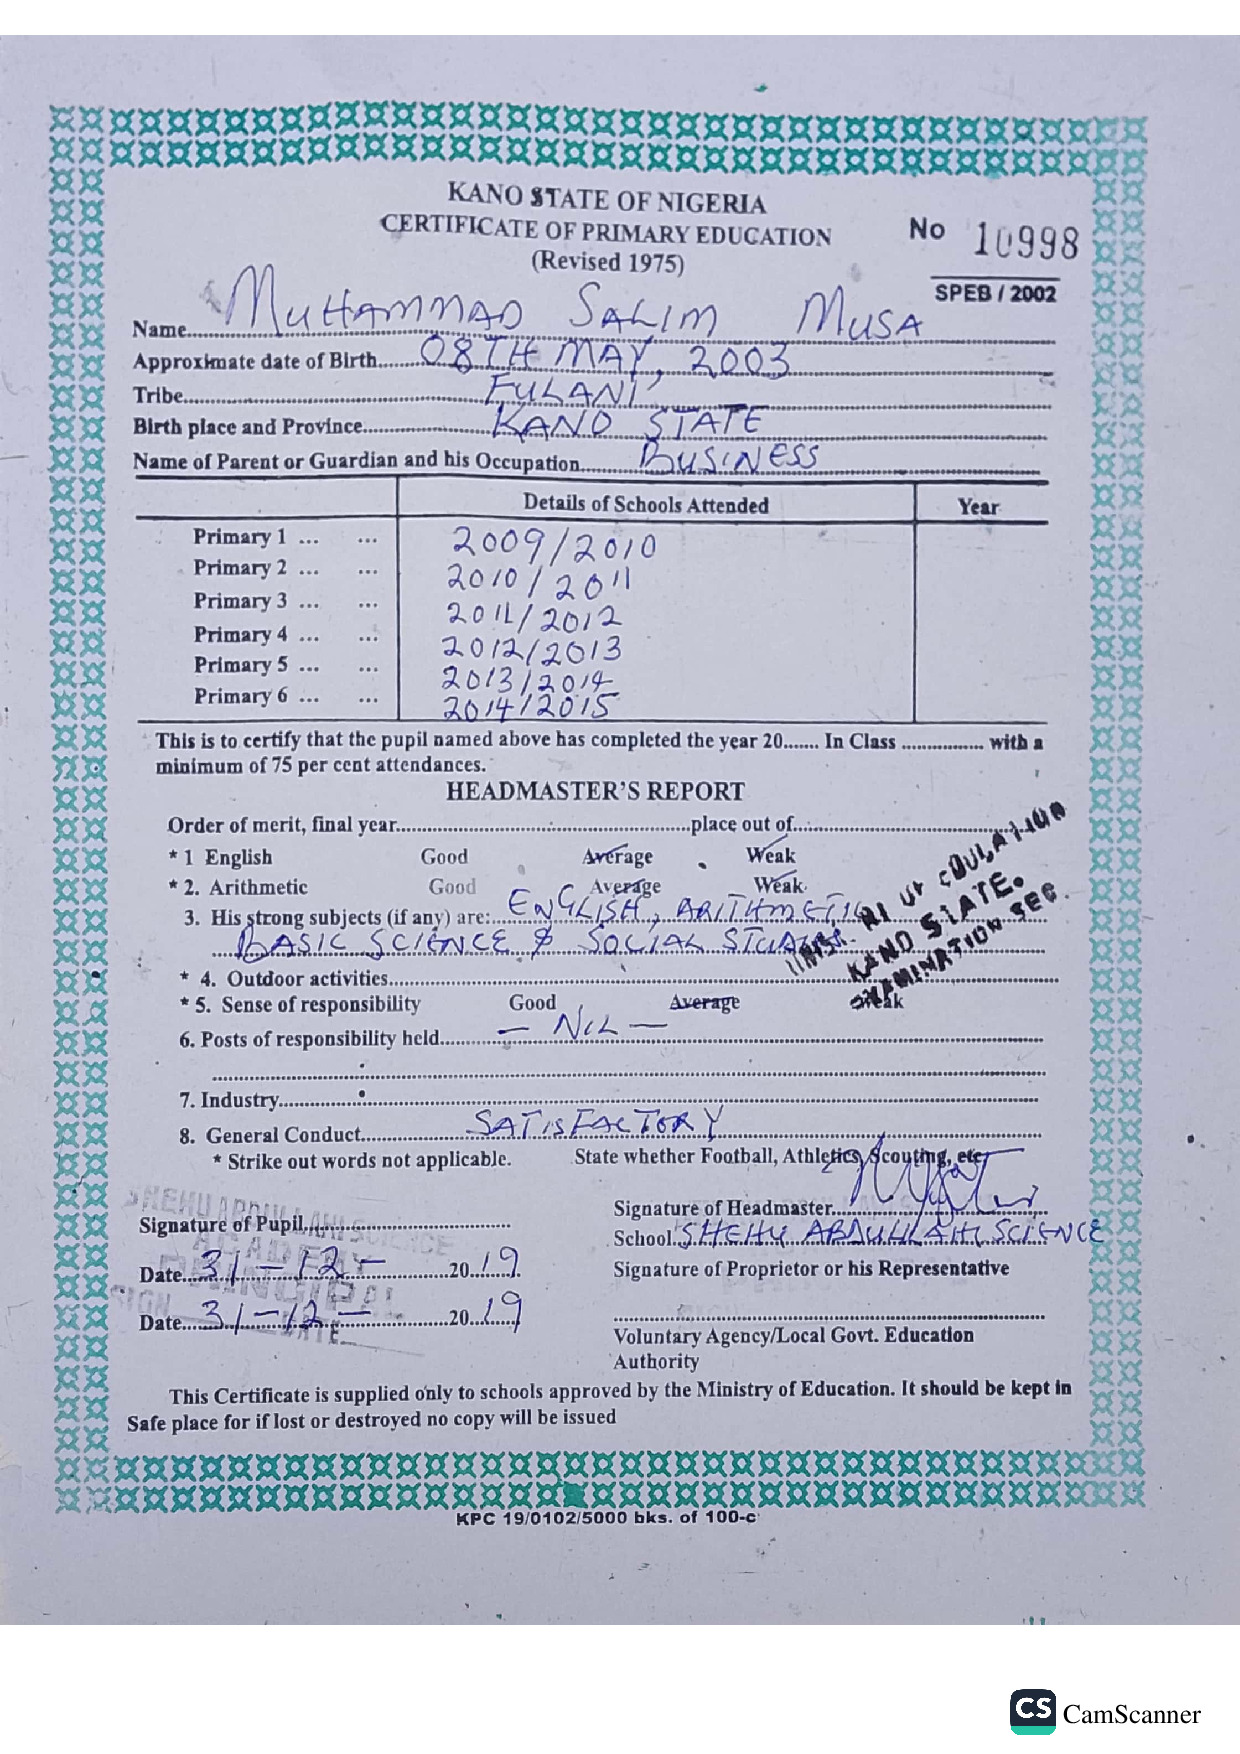 KANO STATE OF NIGERIA
CERTIFICATE OF PRIMARY EDUCATION
(Revised 1975)
No 10998
SPEB / 2002
Name MUHAMMAD SALIM MUSA
Approximate date of Birth 08TH MAY, 2003
Tribe FULANI
Birth place and Province KANO STATE
Name of Parent or Guardian and his Occupation BUSINESS
Details of Schools Attended Year
Primary 1 ... ... 2009/2010
Primary 2 ... ... 2010/2011
Primary 3 ... ... 2011/2012
Primary 4 ... ... 2012/2013
Primary 5 ... ... 2013/2014
Primary 6 ... ... 2014/2015
This is to certify that the pupil named above has completed the year 20....... In Class ................ with a
minimum of 75 per cent attendances.
HEADMASTER'S REPORT
Order of merit, final year..........place out of..........
* 1 English Good Average Weak
* 2. Arithmetic Good Average Weak
3. His strong subjects (if any) are: ENGLISH, ARITHMETIC
BASIC SCIENCE & SOCIAL
* 4. Outdoor activities
* 5. Sense of responsibility Good Average Weak
OF EDUCATION
KANO STATE.
EXAMINATION SEC.
6. Posts of responsibility held — NIL —
7. Industry
8. General Conduct SATISFACTORY
* Strike out words not applicable. State whether Football, Athletics, Scouting, etc
SHEHU ABDULLAHI SCIENCE
ACADEMY
PRINCIPAL
SIGN
DATE
Signature of Pupil
Signature of Headmaster
School SHEHU ABDULLAHI SCIENCE
Date 31-12- 2019
Signature of Proprietor or his Representative
Date 31-12- 2019
Voluntary Agency/Local Govt. Education
Authority
This Certificate is supplied only to schools approved by the Ministry of Education. It should be kept in
Safe place for if lost or destroyed no copy will be issued
KPC 19/0102/5000 bks. of 100-c
CS CamScanner